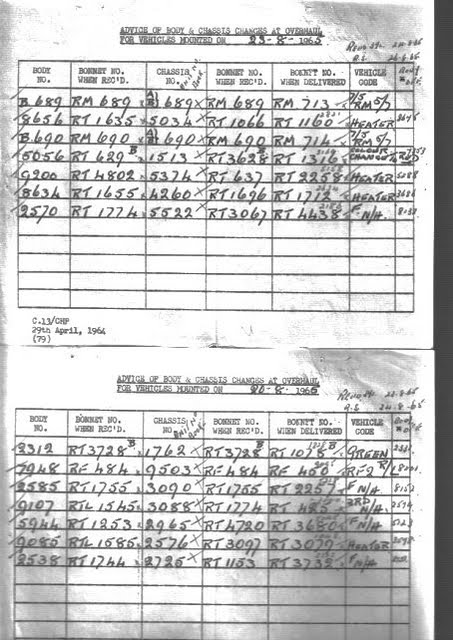 ADVICE OF BODY & CHASSIS CHANGES AT OVERHAUL
FOR VEHICLES MOUNTED ON 23-8-1965
BODY NO. BONNET NO. WHEN REC'D. CHASSIS NO. BONNET NO. WHEN REC'D. BONNET NO. WHEN DELIVERED VEHICLE CODE
B.689 RM 689 689 RM 689 RM 713 7/5 RM 5/7
8656 RT 1635 5034 RT 1066 RT 1160 HEATER
B.690 RM 690 690 RM 690 RM 714 7/5 RM 5/7
5056 RT 629 B 1513 RT3628 B RT 1316 COLOUR CHANGE TO RED
9200 RT 4802 5374 RT 637 RT 2258 HEATER
8634 RT 1655 4260 RT 1696 RT 1712 HEATER
2570 RT 1774 5522 RT3067 RT 4438 F N/A
C.13/CHF
29th April, 1964
(79)
ADVICE OF BODY & CHASSIS CHANGES AT OVERHAUL
FOR VEHICLES MOUNTED ON 20-8-1965
BODY NO. BONNET NO. WHEN REC'D. CHASSIS NO. BONNET NO. WHEN REC'D. BONNET NO. WHEN DELIVERED VEHICLE CODE
2312 RT3728 B 1762 RT3728 B RT 1078 B GREEN
7948 RF 484 9503 RF 484 RF
2585 RT1755 3090 RT1755 RT 2257 F N/A
9107 RTL 1545 3088 RT1774 RT 485 3RD N/A
5944 RT 1253 2965 RT4720 RT 3680 F N/A
9085 RTL 1585 2576 RT3097 RT 3079 HEATER
2538 RT1744 2725 RT 1153 RT3732 F N/A